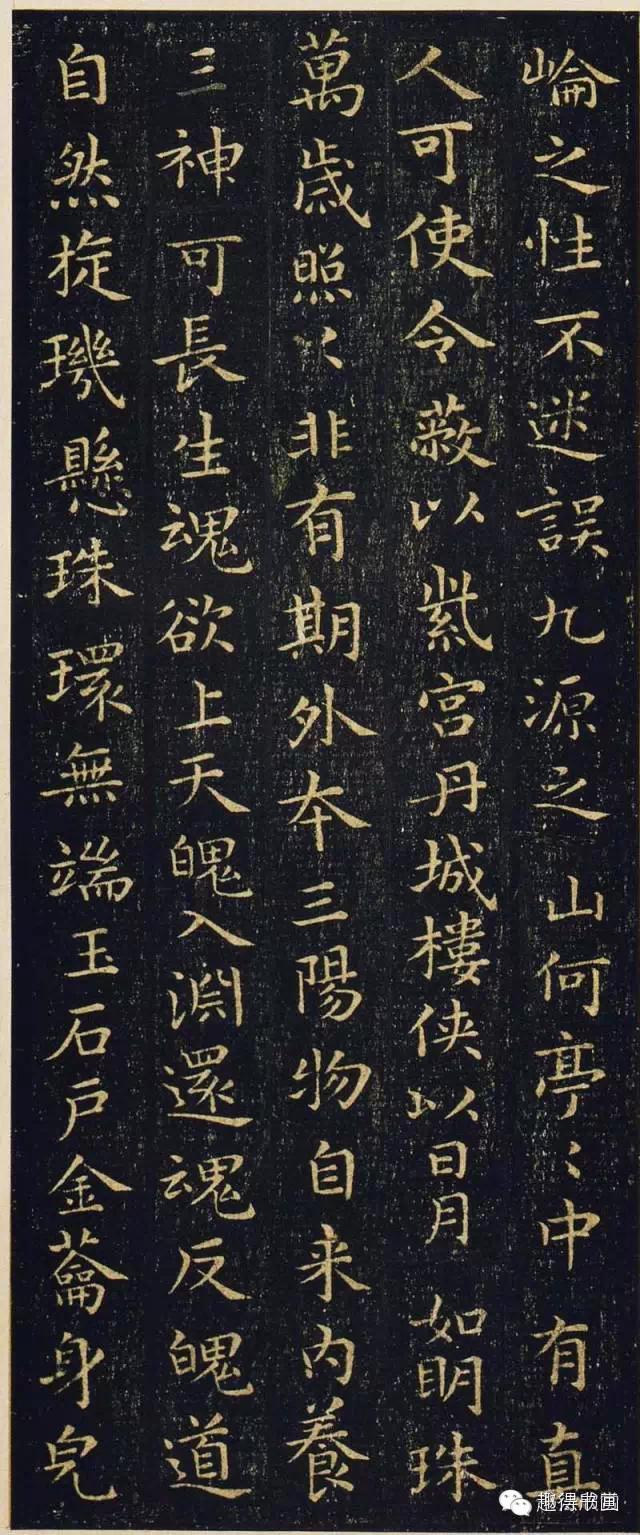 崘之性不迷誤九源之山何亭〻中有真
人可使令蔽以紫宮丹城樓侠以日月如明珠
萬歲照〻非有期外夲三陽物自来内養
三神可長生魂欲上天魄入淵還魂反魄道
自然㨁璣懸珠環無端玉石戶金蘥身皃
趣得欣画